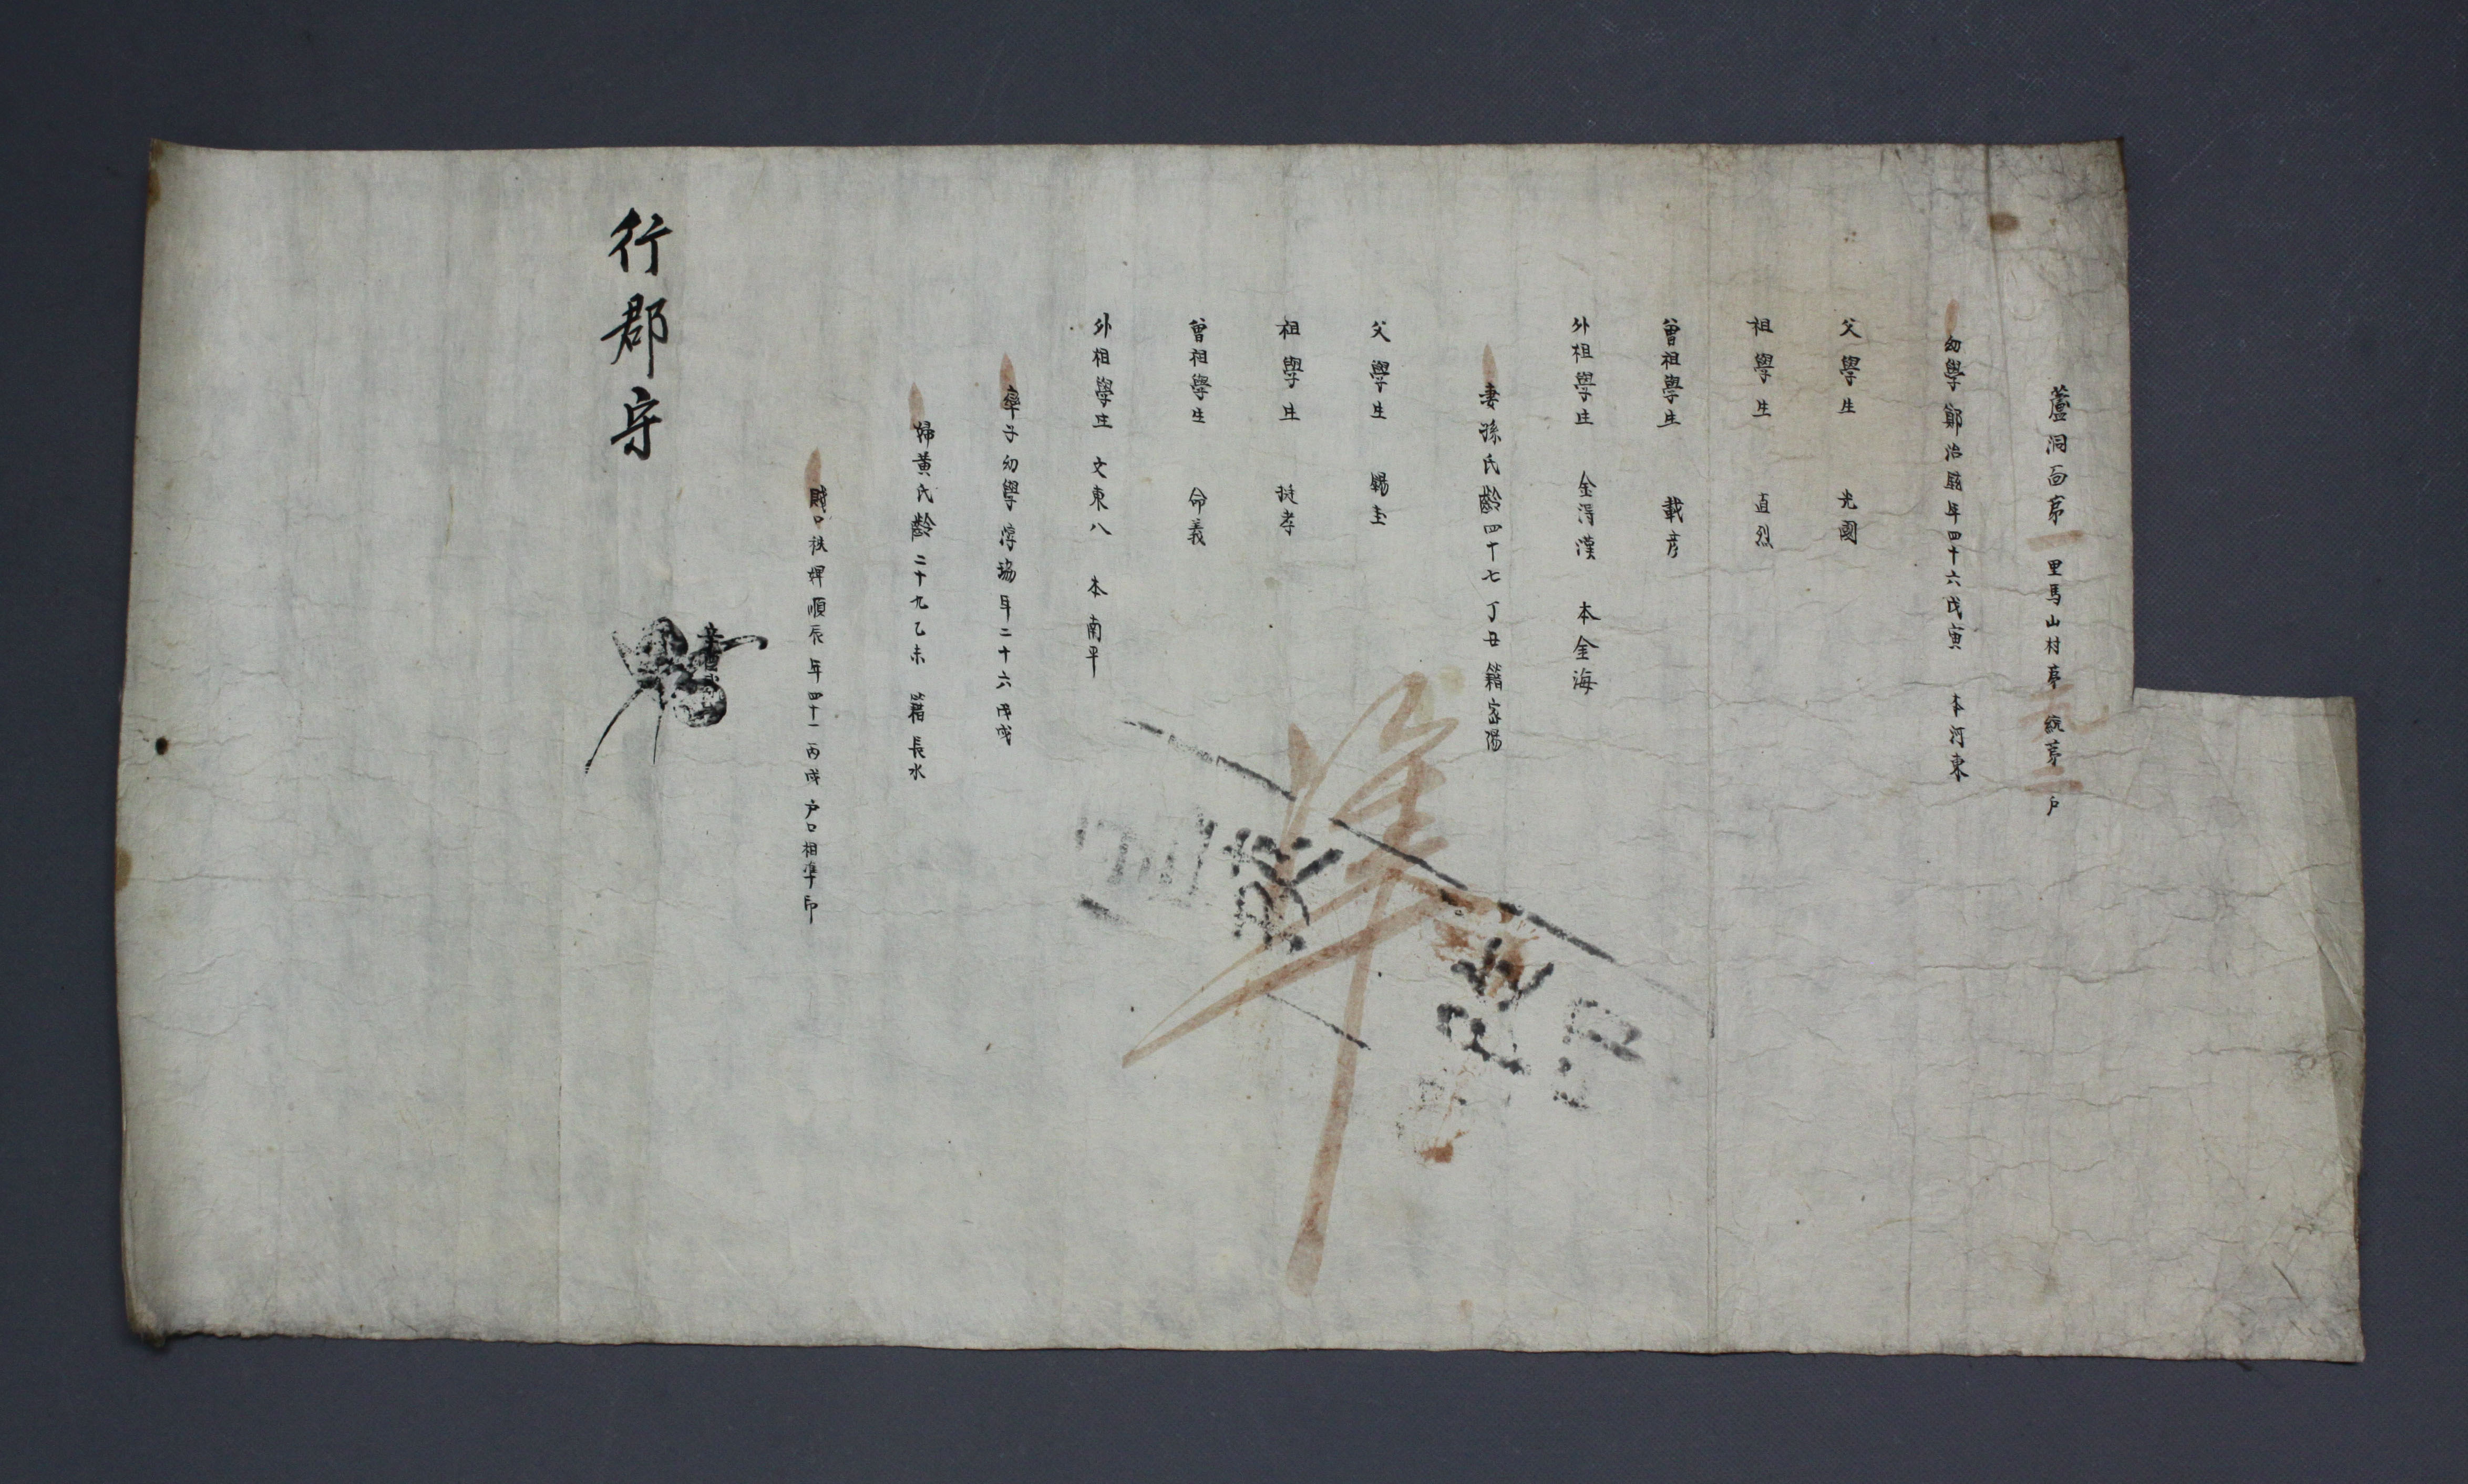 蘆洞面第一里馬山村第九統第二戶
幼學鄭治 年四十六戊寅 本河東
父學生 光國
祖學生 直烈
曾祖學生 載彦
外祖學生 金得漢 本金海
妻孫氏齡四十七丁丑籍密陽
父學生 錫圭
祖學生 挺孝
曾祖學生 命義
外祖學生 文東八 本南平
率子幼學淳 年二十六戊戌
婦黃氏齡二十九乙未 籍長水
賤口秩婢順辰年四十一 丙戌 戶口相準印
行郡守
準